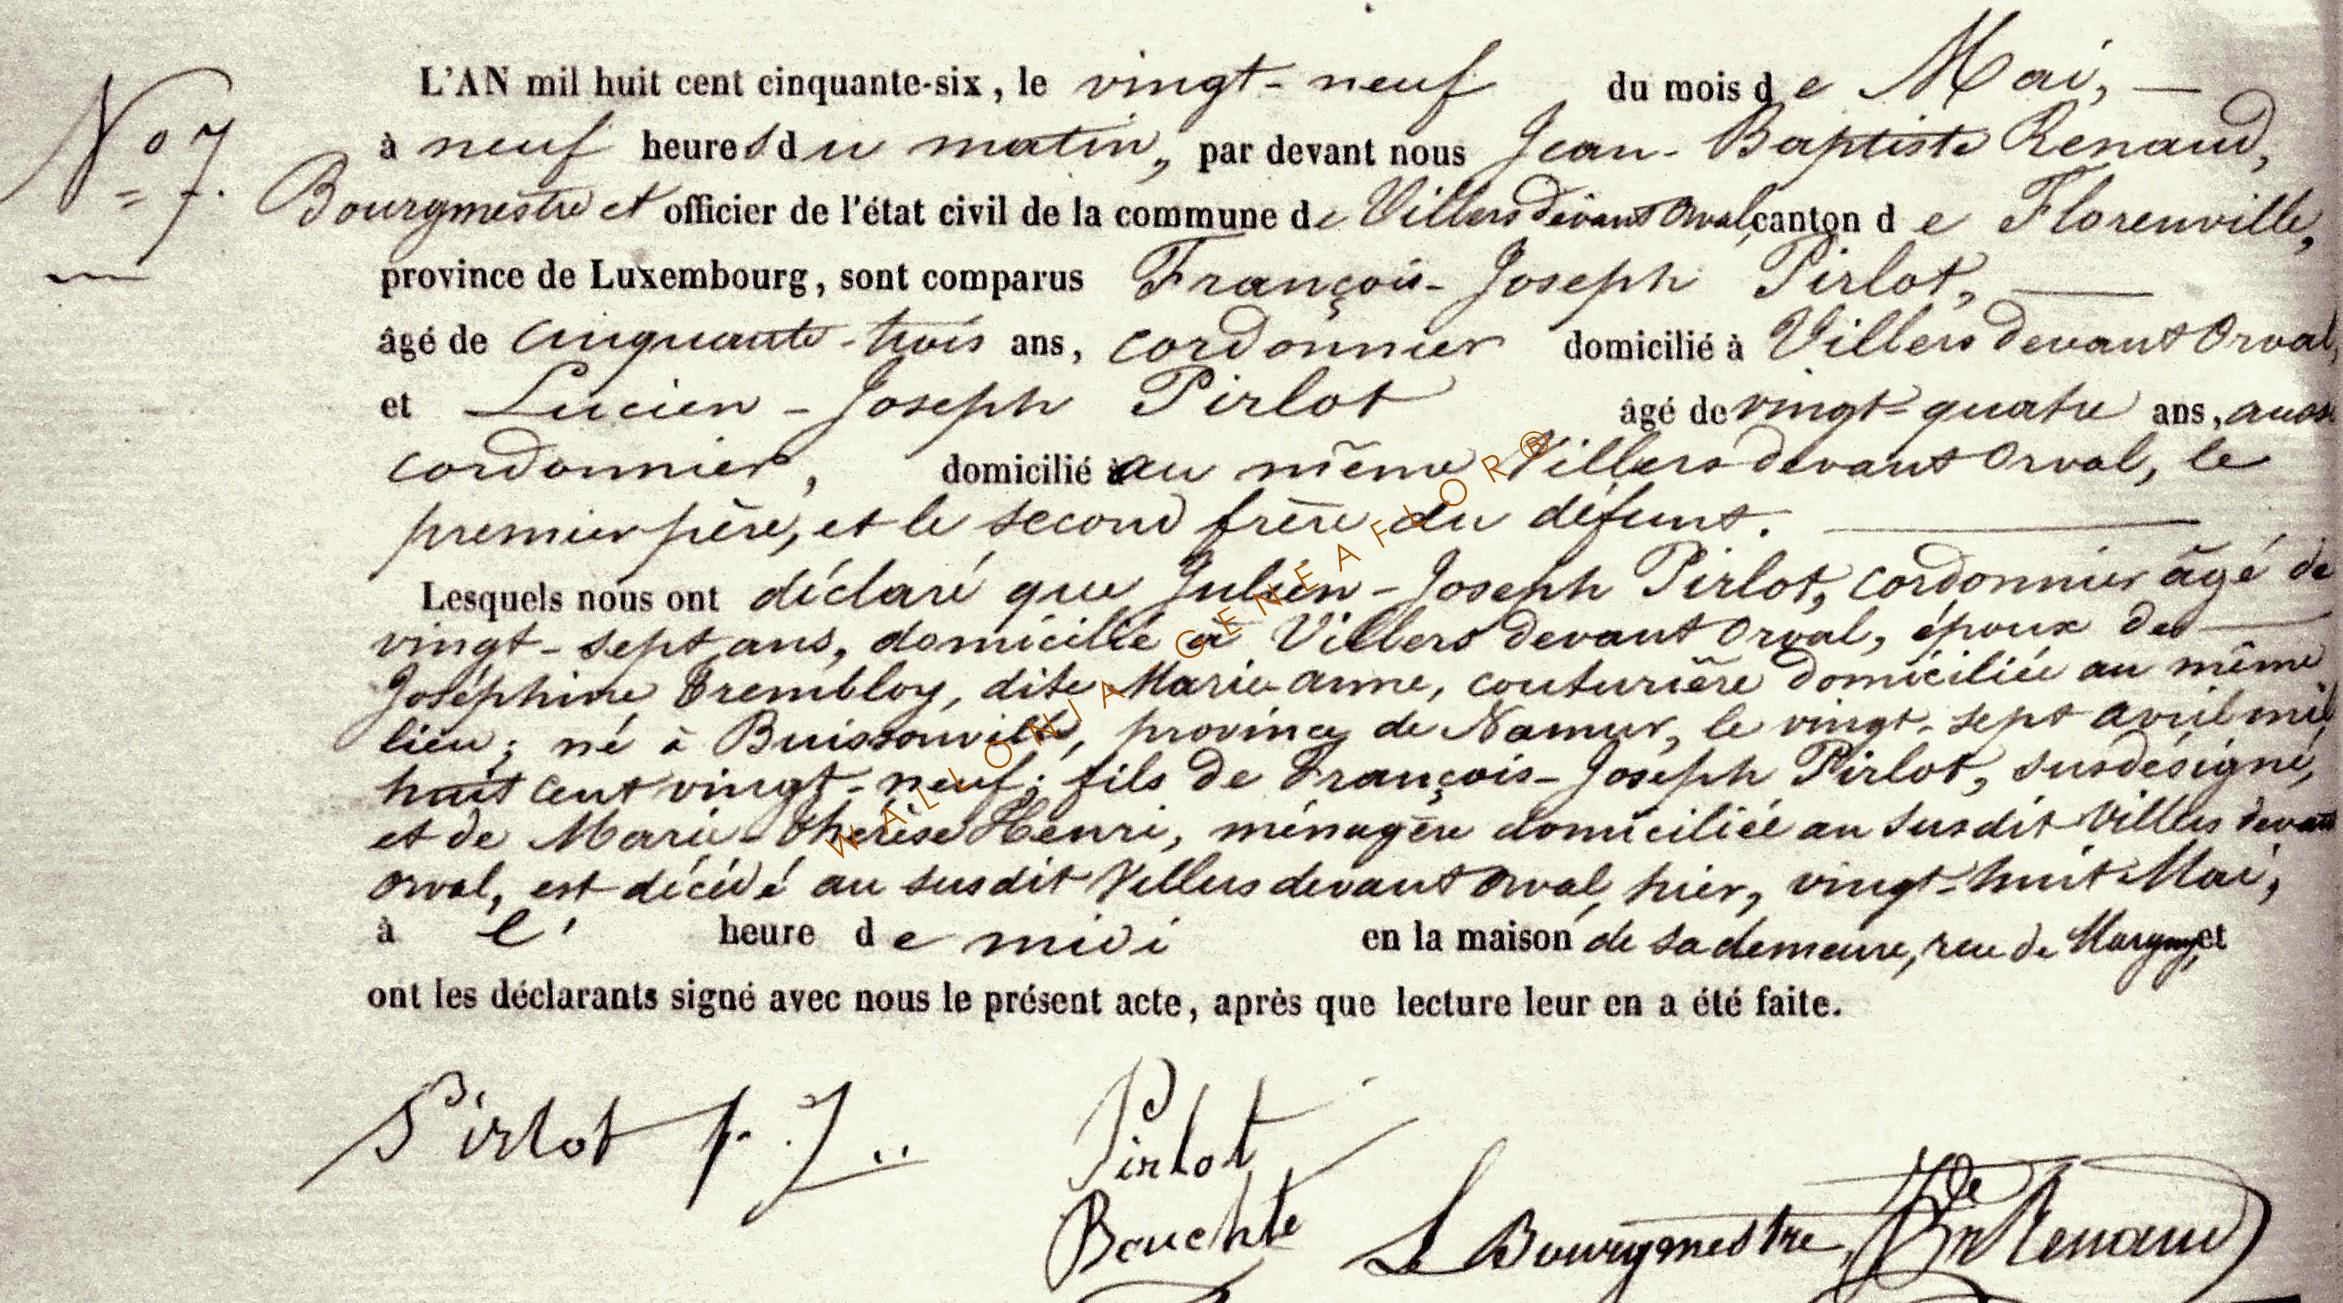 N° 7.
L'AN mil huit cent cinquante-six, le vingt-neuf du mois de Mai, —
à neuf heures du matin, par devant nous Jean-Baptiste Renaud,
Bourgmestre et officier de l'état civil de la commune de Villers devant Orval, canton de Florenville,
province de Luxembourg, sont comparus François-Joseph Pirlot, —
âgé de cinquante-trois ans, cordonnier domicilié à Villers devant Orval,
et Lucien-Joseph Pirlot âgé de vingt-quatre ans, aussi
cordonnier, domicilié au même Villers devant Orval, le
premier père, et le second frère du défunt. —
Lesquels nous ont déclaré que Julien-Joseph Pirlot, cordonnier âgé de
vingt-sept ans, domicilié à Villers devant Orval, époux de —
Joséphine Trembloy, dite Marie-anne, couturière domiciliée au même
lieu; né à Buissonville, province de Namur, le vingt-sept avril mil
huit cent vingt-neuf; fils de François-Joseph Pirlot, susdésigné,
et de Marie-Thérèse Henri, ménagère domiciliée au susdit Villers devant
Orval, est décédé au susdit Villers devant Orval, hier, vingt-huit Mai,
à l' heure de midi en la maison de sa demeure, rue de Margny, et
ont les déclarants signé avec nous le présent acte, après que lecture leur en a été faite.
Pirlot f. J..
Pirlot
Le Bourgmestre, Renaud
WALLONIA GENEAFLOR®